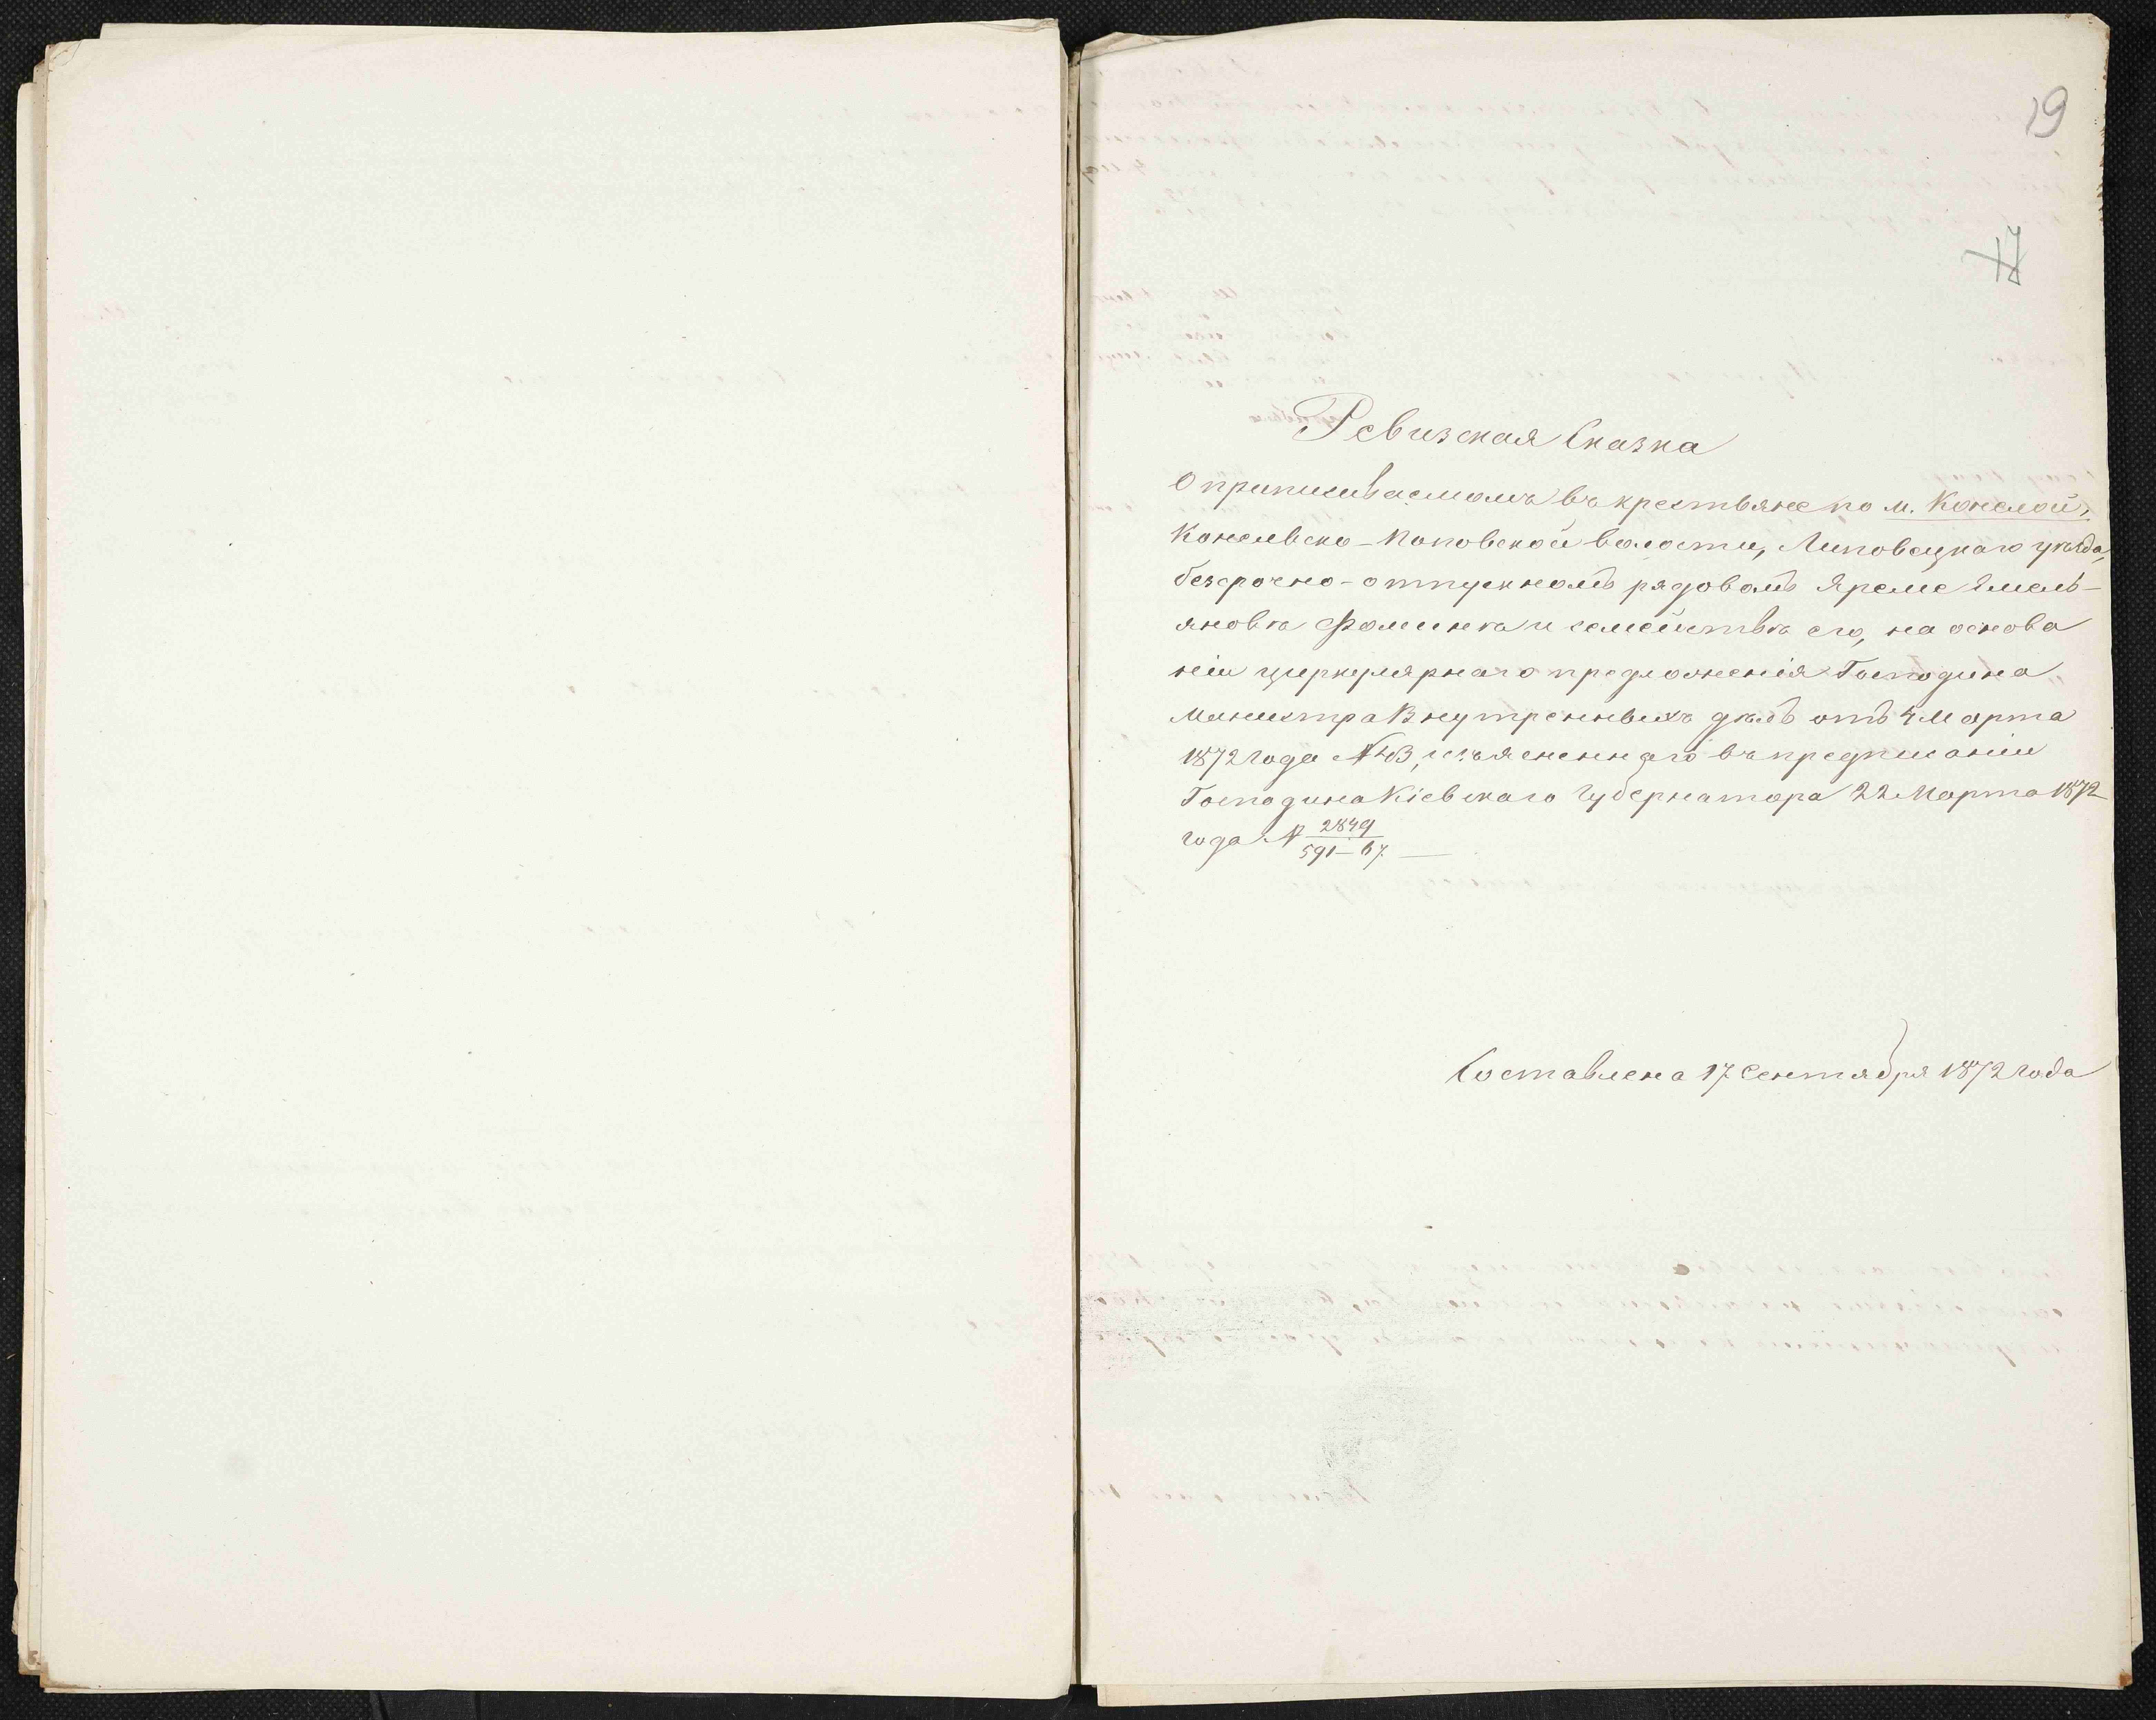 19
17
Ревизская Сказка
О приписываемомъ въ крестьяне по м. Конелой,
Конельско-Поповской волости, Липовецкаго уѣзда,
безсрочно-отпускномъ рядовомъ Яреме Емель-
яновѣ Фоминѣ и семействѣ его, на основа
ніи циркулярнаго предложенія Господина
Министра Внутреннѣихъ дѣлъ отъ 4 Марта
1872 года № 43, изъясненнаго въ предписаніи
Господина Кіевскаго Губернатора 22 Марта 1872
года № 2849/591-67.
Составлена 17 Сентября 1872 года